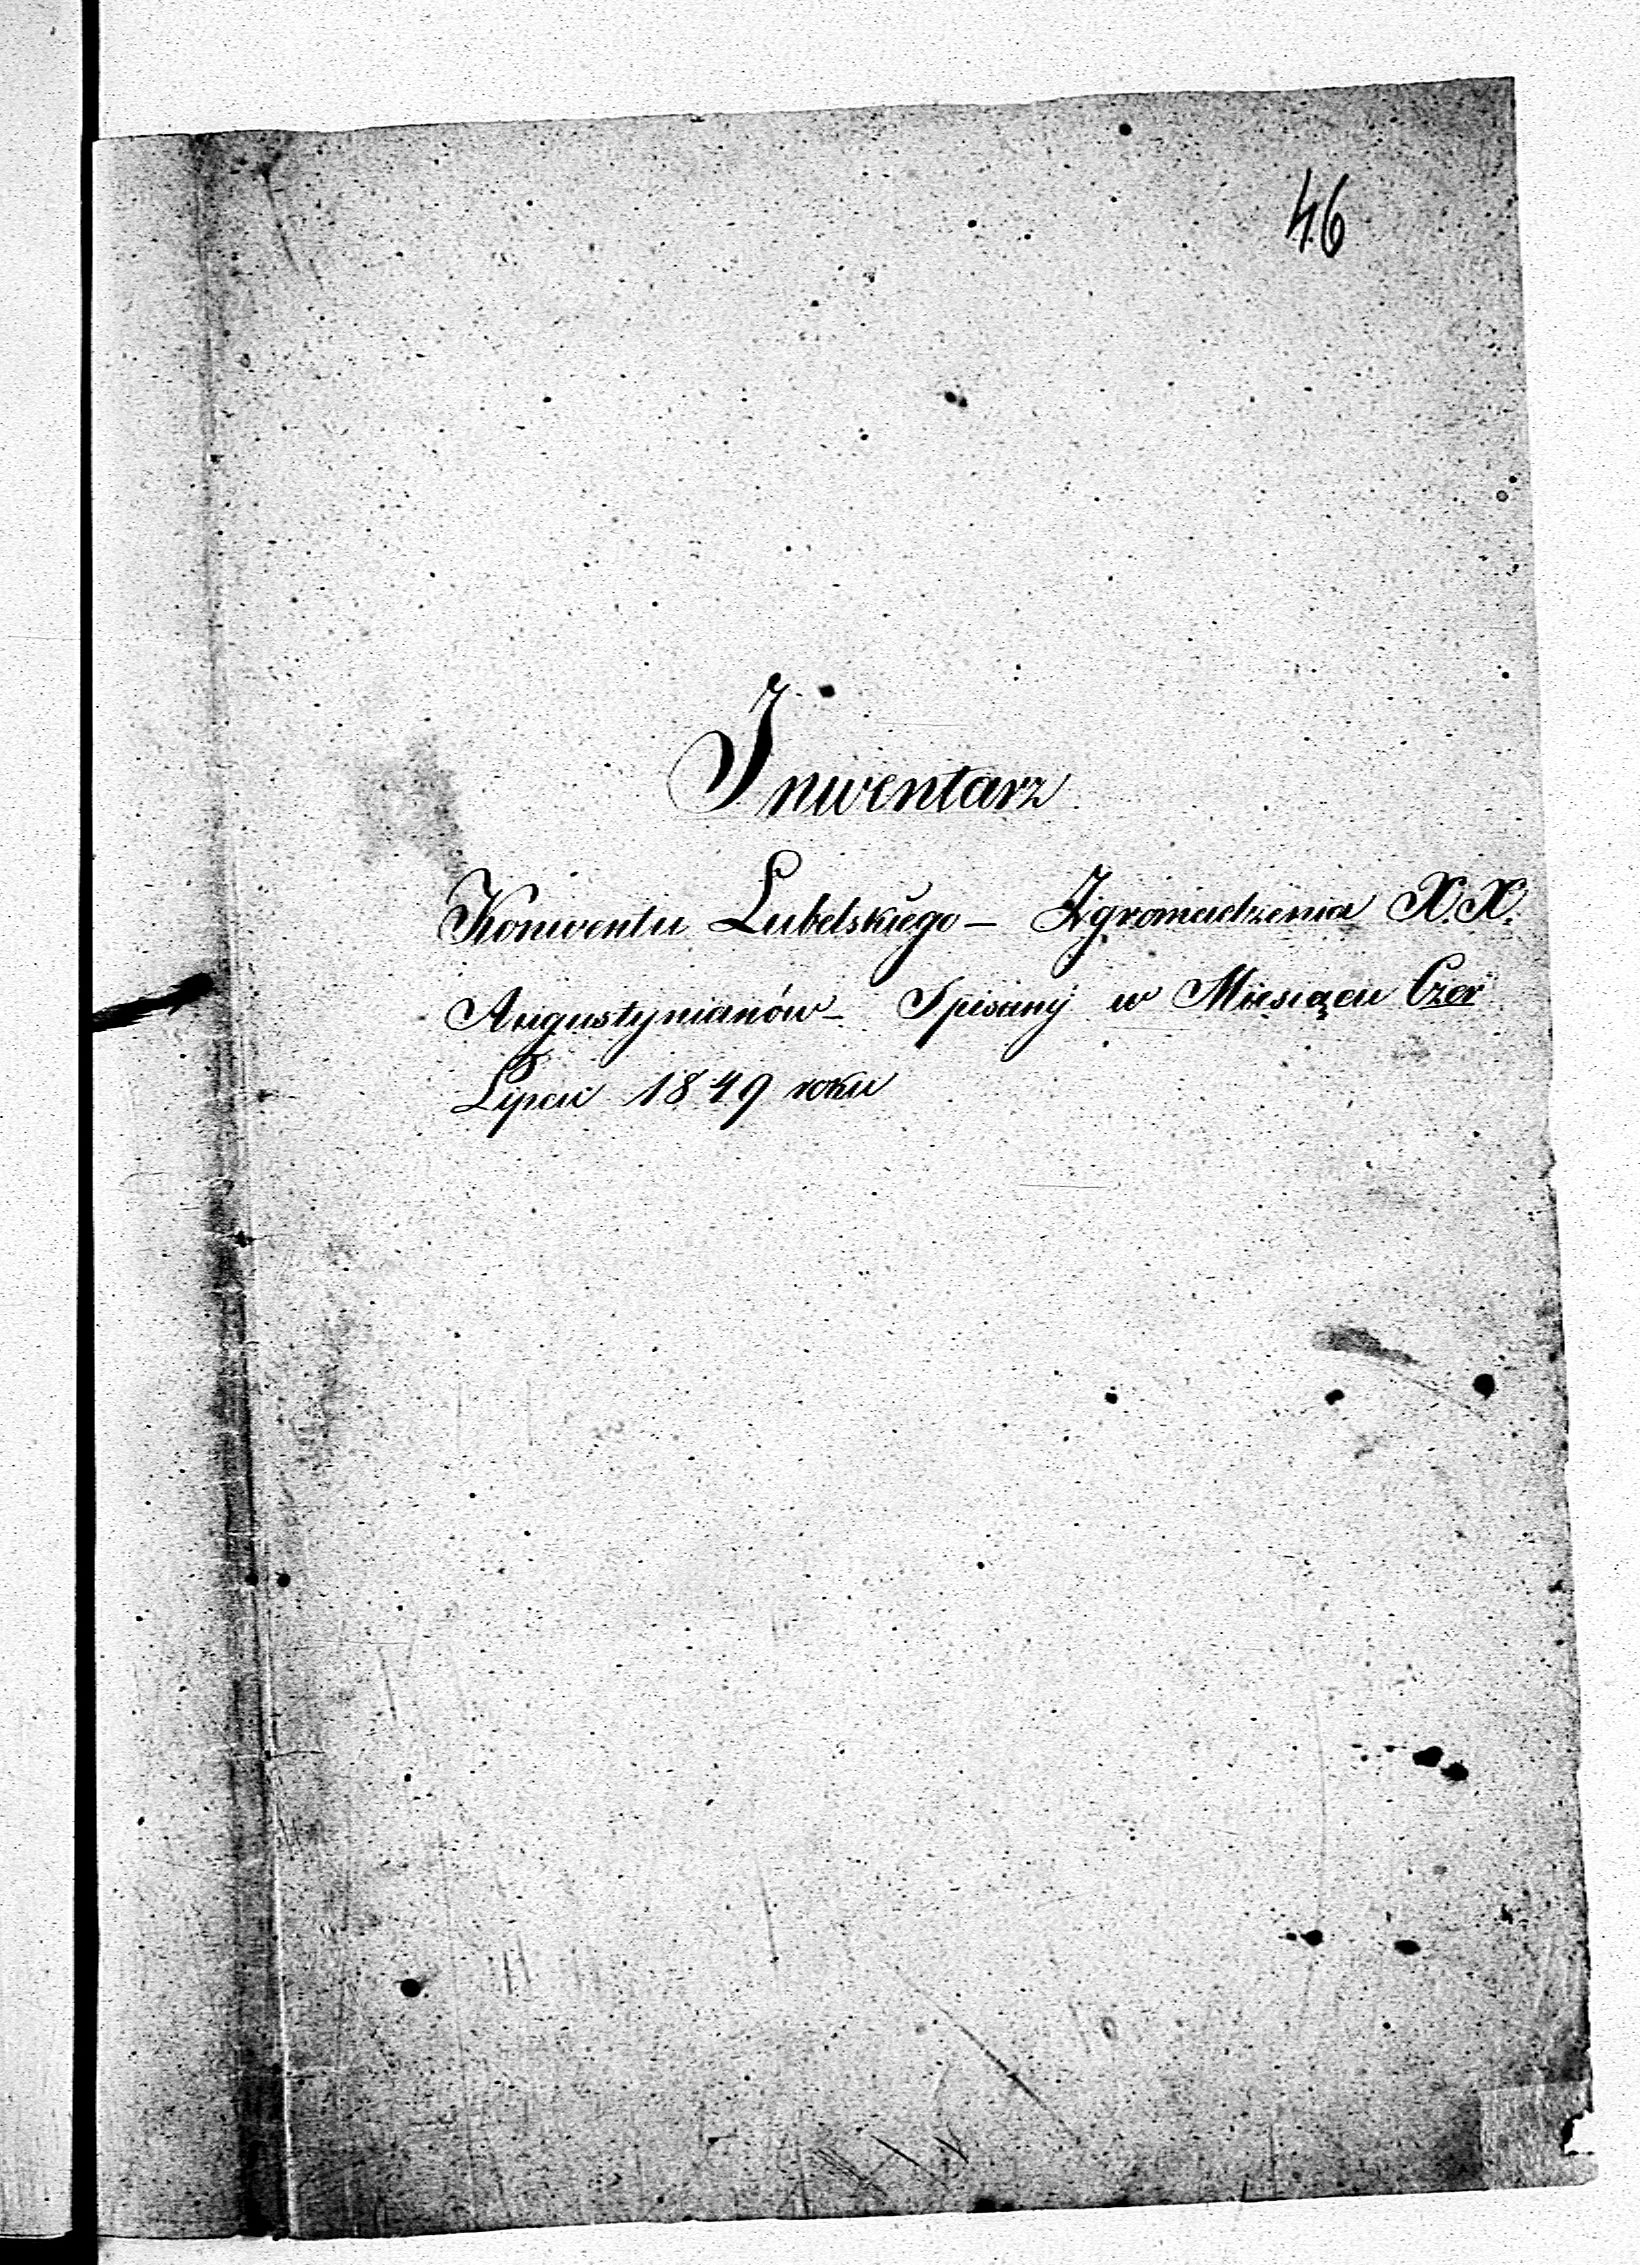 46
Inwentarz
Konwentu Lubelskiego – Zgromadzenia X.X.
Augustynianów – Spisany w Miesiącu Czer
Lipcu 1849 roku